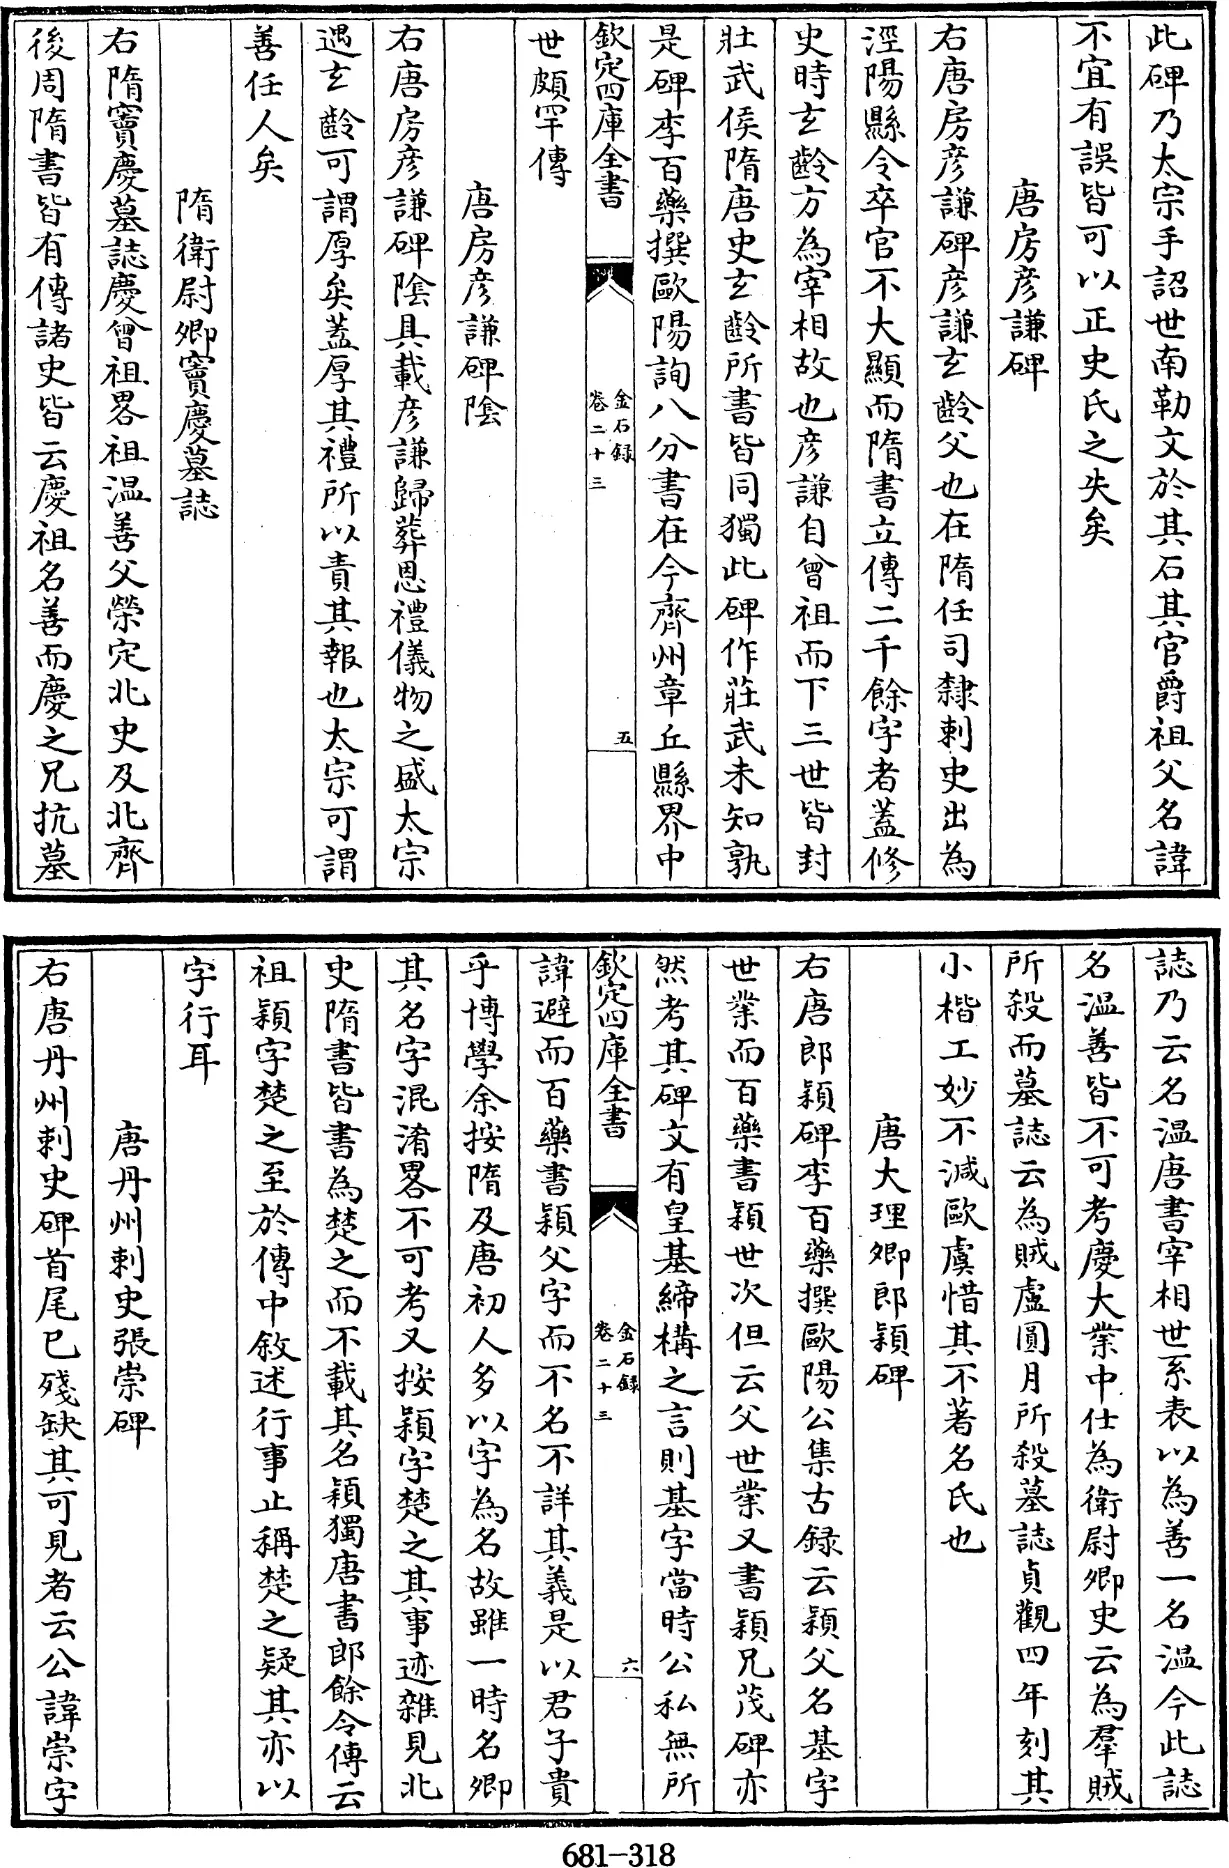 此碑乃太宗手詔世南勒文於其石其官爵祖父名諱
不宜有誤皆可以正史氏之失矣
唐房彦謙碑
右唐房彦謙碑彦謙玄齡父也在隋任司隸刺史出為
涇陽縣令卒官不大顯而隋書立傳二千餘字者蓋修
史時玄齡方為宰相故也彦謙自曾祖而下三世皆封
壯武侯隋唐史玄齡所書皆同獨此碑作莊武未知孰
是碑李百藥撰歐陽詢八分書在今齊州章丘縣界中
欽定四庫全書
金石録
卷二十三
五
世頗罕傳
唐房彦謙碑陰
右唐房彦謙碑陰具載彦謙歸葬恩禮儀物之盛太宗
遇玄齡可謂厚矣蓋厚其禮所以責其報也太宗可謂
善任人矣
隋衛尉卿竇慶墓誌
右隋竇慶墓誌慶曾祖畧祖温善父榮定北史及北齊
後周隋書皆有傳諸史皆云慶祖名善而慶之兄抗墓
誌乃云名温唐書宰相世系表以為善一名温今此誌
名温善皆不可考慶大業中仕為衛尉卿史云為羣賊
所殺而墓誌云為賊盧圓月所殺墓誌貞觀四年刻其
小楷工妙不減歐虞惜其不著名氏也
唐大理卿郎穎碑
右唐郎穎碑李百藥撰歐陽公集古録云穎父名基字
世業而百藥書穎世次但云父世業又書穎兄茂碑亦
然考其碑文有皇基締構之言則基字當時公私無所
欽定四庫全書
金石録
卷二十三
六
諱避而百藥書穎父字而不名不詳其義是以君子貴
乎博學余按隋及唐初人多以字為名故雖一時名卿
其名字混淆畧不可考又按穎字楚之其事迹雜見北
史隋書皆書為楚之而不載其名穎獨唐書郎餘令傳云
祖穎字楚之至於傳中敘述行事止稱楚之疑其亦以
字行耳
唐丹州刺史張崇碑
右唐丹州刺史碑首尾已殘缺其可見者云公諱崇字
681-318